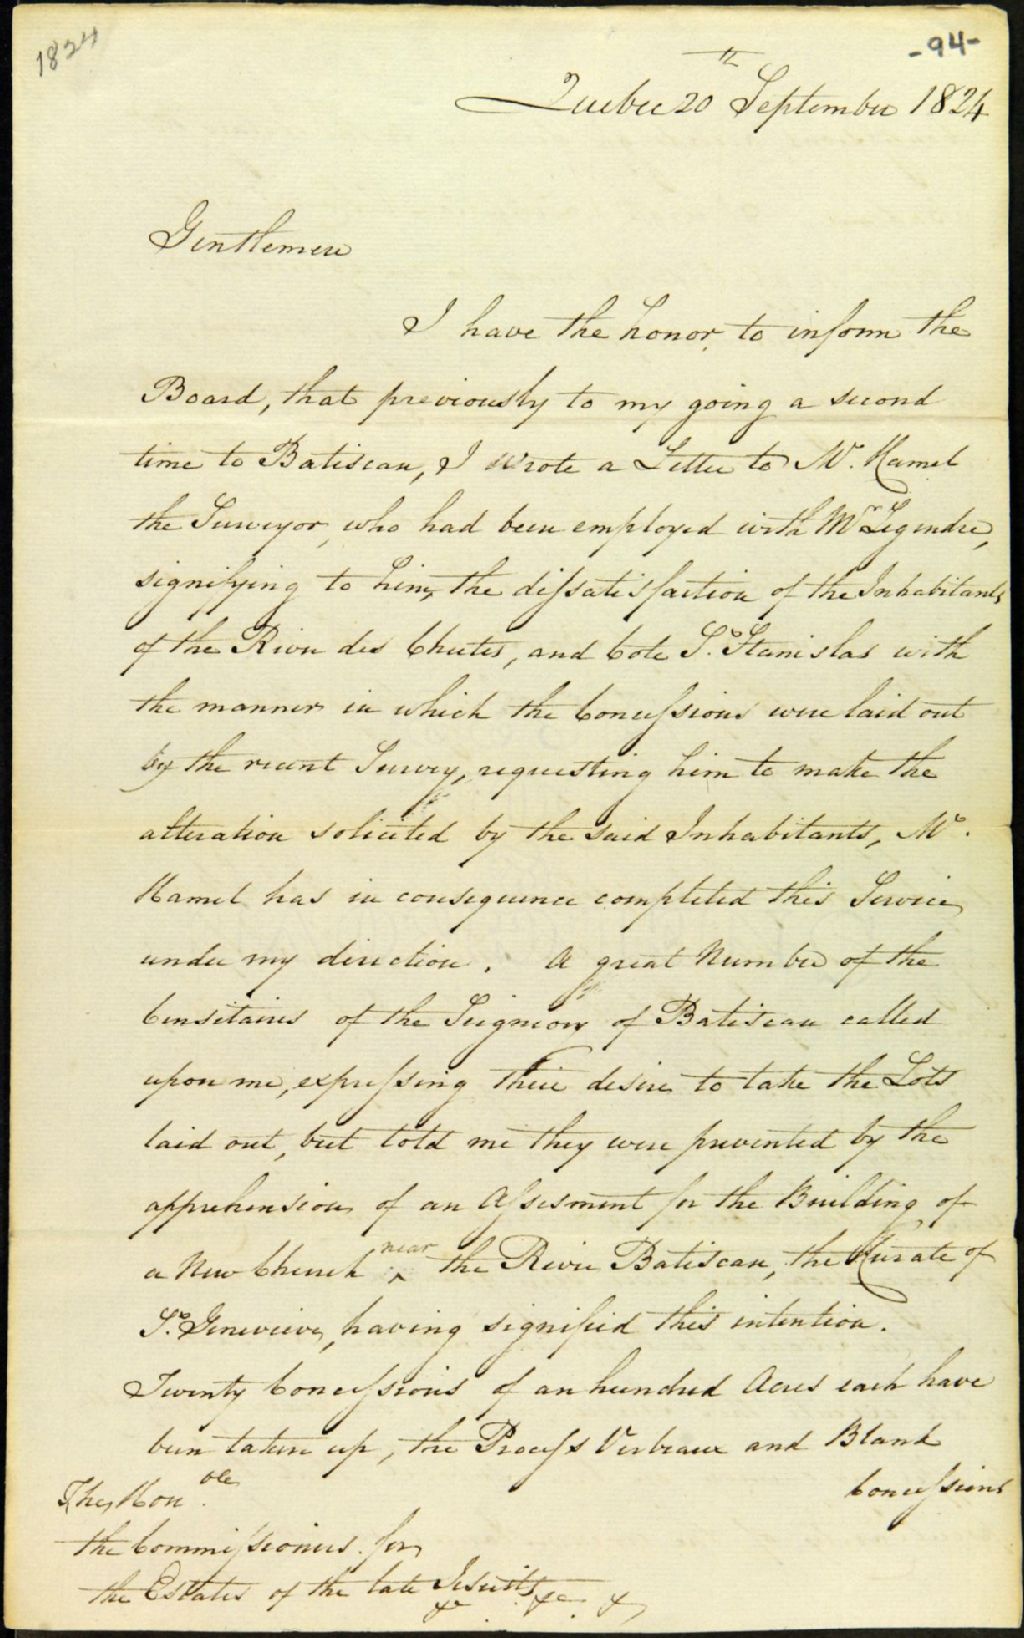 1824
-94-
Quebec 20th September 1824
Gentlemen
I have the honor to inform the
Board, that previously to my going a second
time to Batiscan, I wrote a Letter to Mr. Hamel
the Surveyor, who had been employed with Mr Legendre,
signifying to him, the dissatisfaction of the Inhabitants
of the River des Chutes, and Cote St. Stanislas with
the manner in which the Concessions were laid out
by the recent Survey, requesting him to make the
alteration solicited by the said Inhabitants, Mr.
Hamel has in consequence completed this Service
under my direction. A great Number of the
Censitaires of the Seigniory of Batiscan called
upon me, expressing their desire to take the Lots
laid out, but told me they were prevented by the
apprehension of an Assesment for the Building of
a New Church near the River Batiscan, the Curate of
St. Genevieve, having signified this intention.
Twenty Concessions of an hundred Acres each have
been taken up, the Process Verbeaux and Blank
Concessions
The Honble.
the Commissioners for
the Estates of the late Jesuits &c &c &